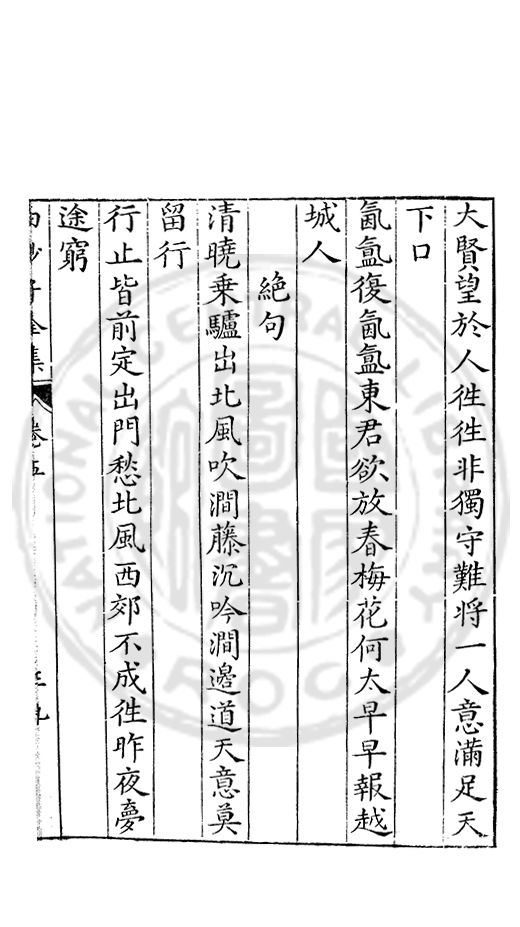 大賢望於人徃徃非獨守難將一人意滿足天
下口
氤氳復氤氳東君欲放春梅花何太早早報越
城人
絶句
清曉乗驢出北風吹澗藤沉吟澗邉道天意莫
留行
行止皆前定出門愁北風西郊不成徃昨夜夢
途窮
子全集 卷五